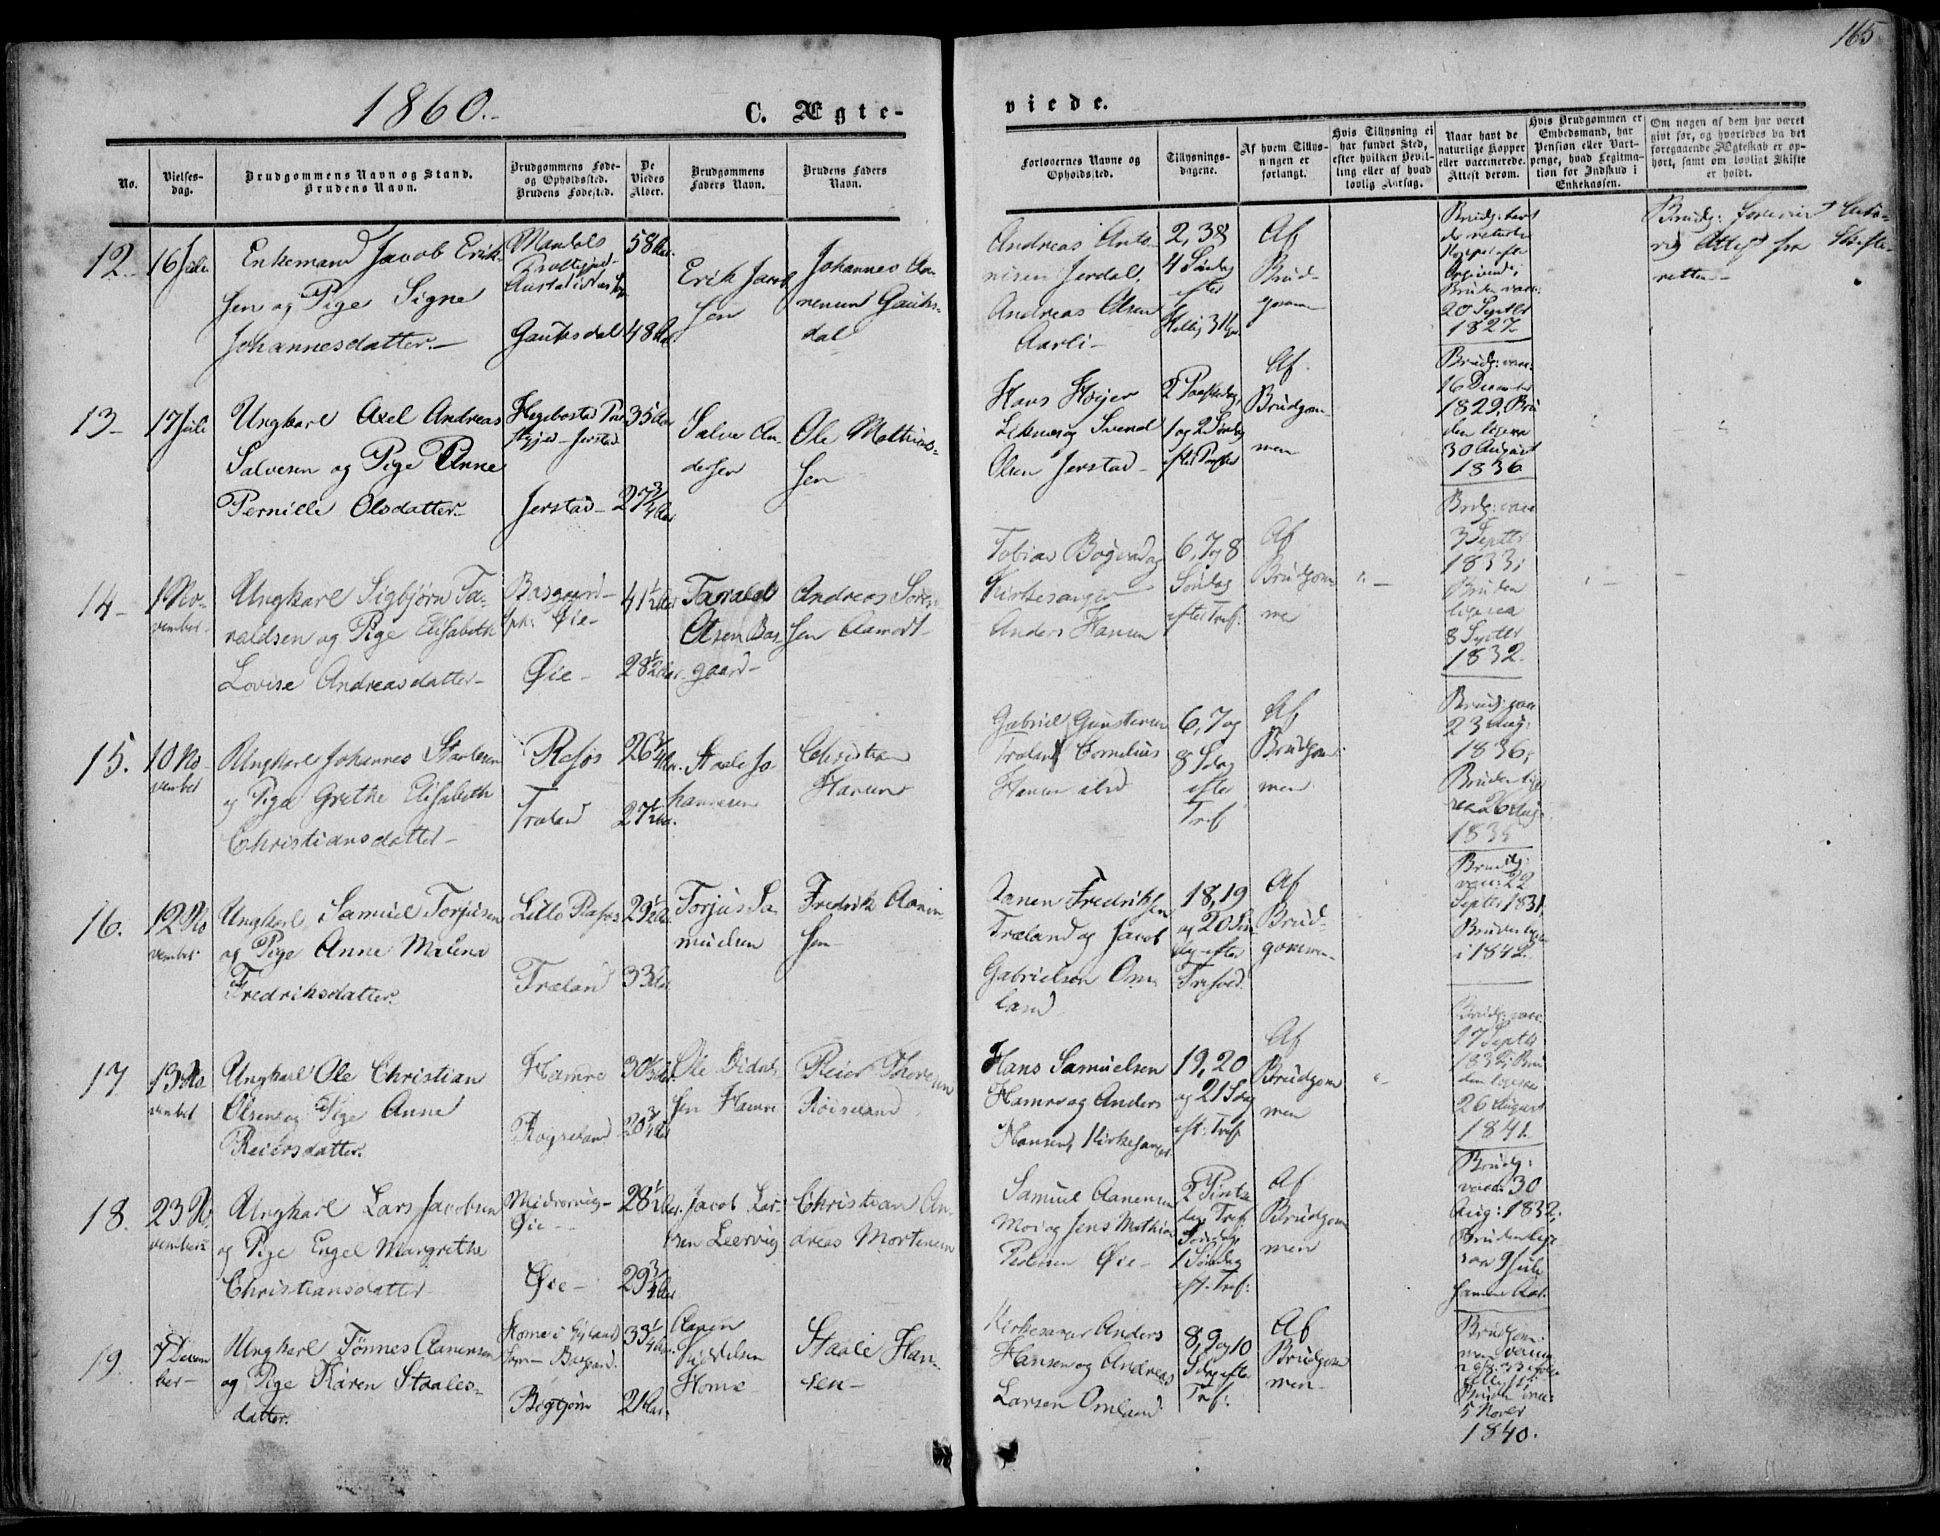 165
1860.
C. Ægte-
viede.
No.
Vielses-
dag.
Brudgommens Navn og Stand.
Brudens Navn.
Brudgommens Føde-
og Opholdssted.
Brudens Fødested.
De
Viedes
Alder.
Brudgommens
Faders Navn.
Brudens Faders
Navn.
Forlovernes Navne og
Opholdssted.
Tillysnings-
dagene.
Af hvem Tillys-
ningen er
forlangt.
Hvis Tillysning ei
har fundet Sted,
efter hvilken Bevil-
ling eller af hvad
lovlig Aarsag.
Naar havt de
naturlige Kopper
eller vaccinerede.
Attest derom.
Hvis Brudgommen er
Embedsmand, har
Pension eller Vart-
penge, hvad Legitima-
tion for Indskud i
Enkekassen.
Om nogen af dem har været
givt før, og hvorledes da det
foregaaende Ægteskab er op-
hørt, samt om lovligt Skifte
er holdt.
12.
16 Juli
Enkemand Jacob Erik-
sen og Pige Signe
Johannesdatter.
Mandals
Gauksdal
58 Aar.
48 Aar
Erik Jacob
sen
Johannes
Gauks-
dal
Andreas Anto-
nisen Jerdal.
Andreas Olsen
Aarli
2, 3 &
4 Søndag
efter
Af
Brud-
gom
Brudg: havt
de naturlige
Bruden vacc:
20 Septbr
1827.
Brudg:
Attest fra Skifte-
retten
13
17 Juli
Ungkarl Axel Andreas
Salvesen og Pige Anne
Pernille Olsdatter.
Hegebostad Præ
stegjed - Jerstad
Jerstad
35 Aar
27 3/4 Aar
Salve An-
dersen
Ole Mathias-
sen
Hans Høyer
og Svend
Olsen Jerstad
2 Paaskedag
1 og 2 Søndag
efter Paaske
Af
Brudgom-
men
Brudg: vacc:
16 December
1829, Bru
den ligesaa
30 August
1836
14
1 No-
vember
Ungkarl Sigbjørn Ta-
raldsen og Pige Elisabeth
Lovise Andreasdatter
Basgaard
Øie
Øie
41 1/2 Aar
28 1/2 Aar
Tarald
Olsen Bas-
gaard
Andreas Søren-
sen Aamodt
Tobias Bøgvad og
Kirkesanger
Anders Hansen
6, 7 og 8
Søndag
efter Tref:
Af
Brudgom-
me
Brdg: vacc
3 Septbr
1833;
Bruden
ligesaa
8 Septbr
1832.
15.
10 No-
vember
Ungkarl Johannes Staalesen
og Pige Grethe Elisabeth
Christiansdatter
Refsø
Træland
26 3/4 Aar.
27 1/2 Aar.
Staale Jo-
hannesen
Christian
Hansen
Gabriel Gunstensen
Træland Cornelius
Hansen ibid
6, 7 og
8 Sdag
efter
Tref
Af
Brudgom-
men
Brudg: vacc
23 Aug:
1836;
Bruden lige
saa 26 Aug:
16.
12 No
vember
Ungkarl Samuel Torjusen
og Pige Anne Malena
Fredriksdatter.
Lille Refsø
Træland
29 1/2 A.
33 Aar
Torjus Sa-
muelsen
Fredrik Aanen
sen
Aanen Fredriksen
Træland og Jacob
Gabrielsen Om-
land
18, 19
og 20 Søn
dag efter
Trefold.
Af
Brud-
gommen
Brudg:
vacc: 22
Septbr 1831,
Bruden lige
i 1842.
17
13 No
vember
Ungkarl Ole Christian
Olsen og Pige Anne
Reiersdatter.
Hamre
Røyseland
Ole
sen Hamre
Reier
Røiseland
Hans Samuelsen
Hamre og Anders
Hansen, Kirkesanger
19, 20
og 21 Sdag
eft: Tref
Af
Brudgom
men
Brudg: vacc:
17 Septbr
den ligesaa
26 August
1841.
18.
23 No
vember
Ungkarl Lars Jacobsen
og Pige Engel Margrethe
Christiansdatter
Øie
Øie
28 1/2 Aar.
29 3/4 Aar
Jacob Lar-
sen Leervig
Christian An-
dreas Mortensen
Samuel Aanensen
Moi og Jens Mathias
Pedersen Øie
2 Pintse
dag Tref:
Søndag
1 Søndag
eft. Tref:
Af
Brudgom
men
Brudg:
vacc: 30
Aug: 1832;
Bruden lige
saa 9 Juli
samme Aar.
19.
7 Decem
ber
Ungkarl Tønnes Aanensen
og Pige Karen Staales-
datter.
Home i Gyland
21 Aar.
Aanen
Home
Staale Han-
sen
Kirkesanger Anders
Hansen og Andreas
Larsen Omland
8, 9 og 10
Sdag efter
Tref:
Af
Brudgom
men
Brudgom-
men
5 Novbr
1840.